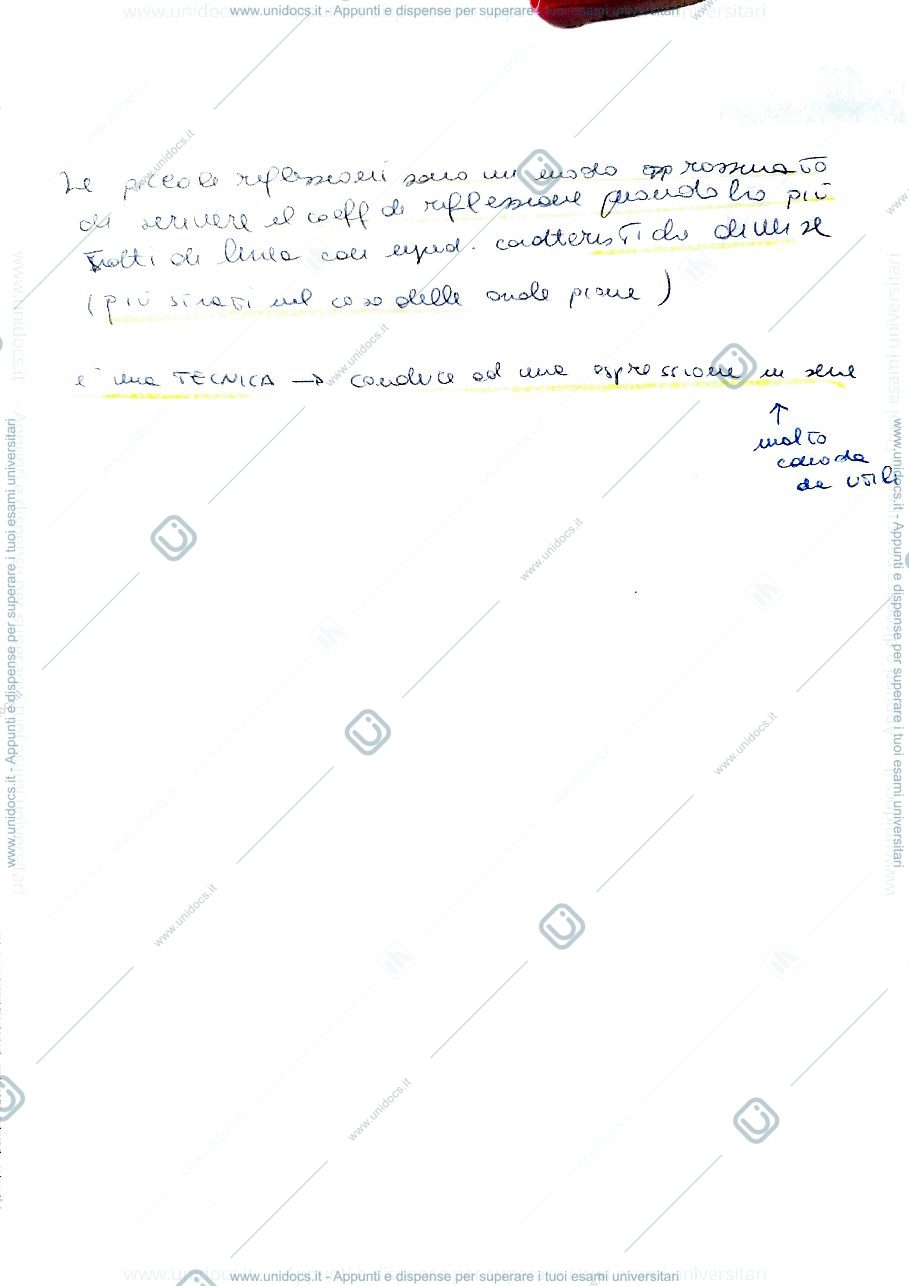 www.unidocs.it - Appunti e dispense per superare i tuoi esami universitari
Le piccole riflessioni sono un modo approssimato
di scrivere il coeff di riflessione quando ho più
tratti di linea con imped. caratteristiche diverse
(più strati nel caso delle onde piane)
e' una TECNICA → conduce ad una espressione in serie
↑
molto
comoda
da
www.unidocs.it - Appunti e dispense per superare i tuoi esami universitari
www.unidocs.it - Appunti e dispense per superare i tuoi esami universitari
www.unidocs.it
www.unidocs.it
www.unidocs.it
www.unidocs.it
www.unidocs.it
www.unidocs.it
www.unidocs.it - Appunti e dispense per superare i tuoi esami universitari